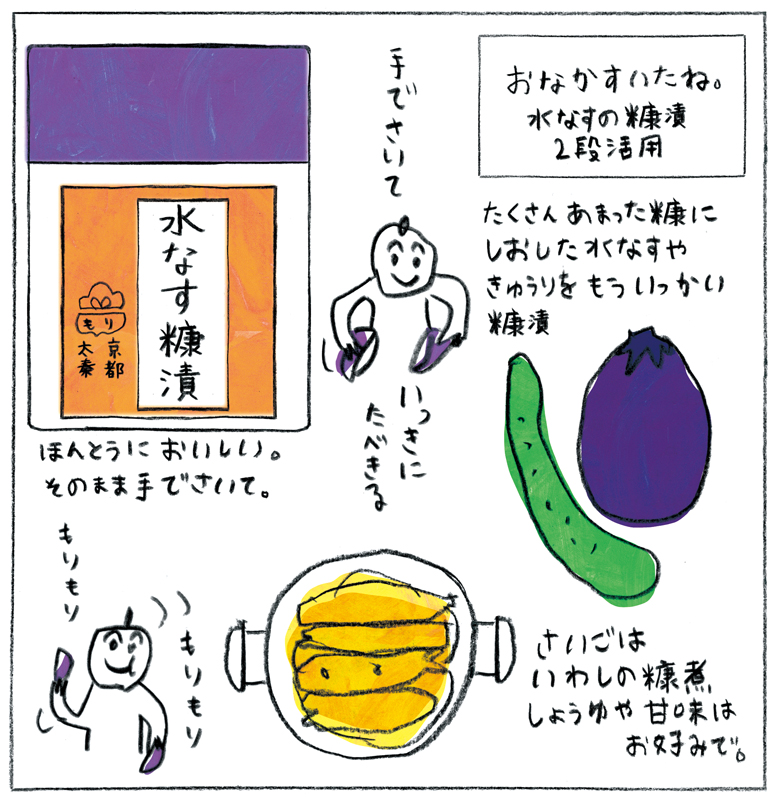 おなかすいたね。
水なすの糠漬
2段活用
水なす糠漬
もり
京都
太秦
ほんとうに おいしい。
そのまま手でさいて。
手でさいて
いっきに
たべきる
もりもり
もりもり
たくさん あまった糠に
しおした水なすや
きゅうりを もういっかい
糠漬
さいごは
いわしの糠煮
しょうゆや 甘味は
お好みで。